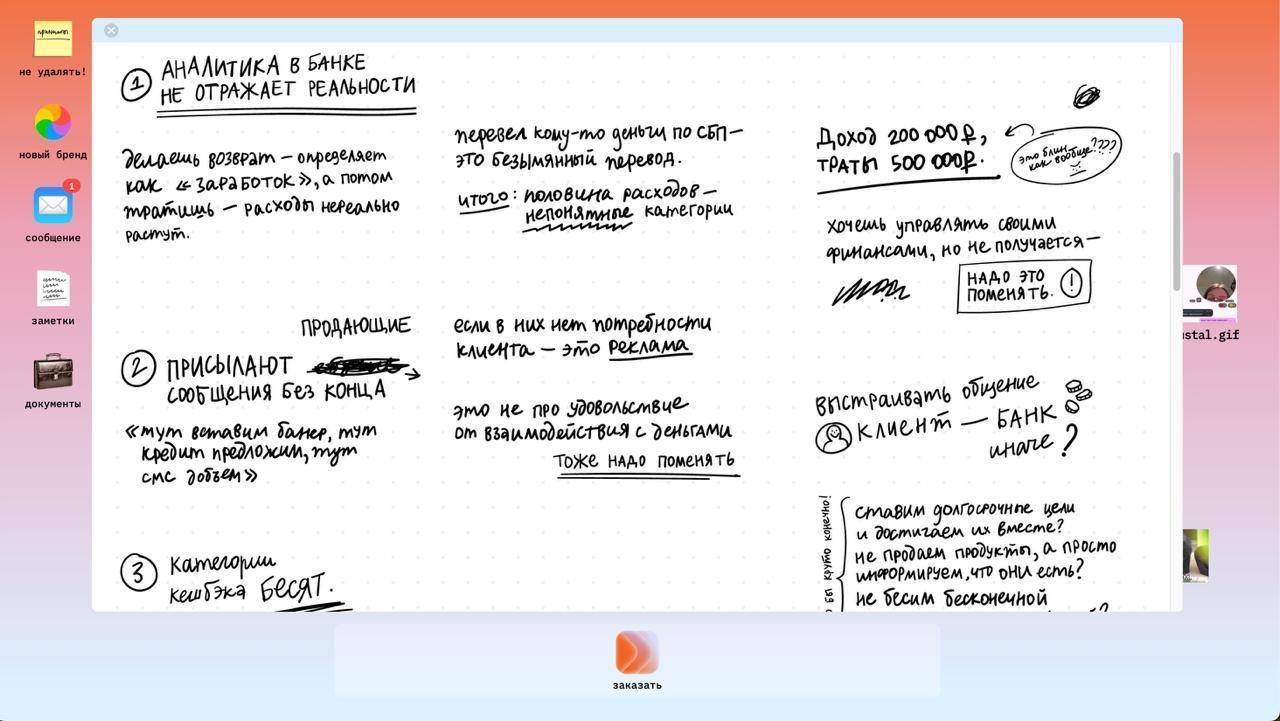 не удалять!
новый бренд
1
сообщение
заметки
документы
1 АНАЛИТИКА В БАНКЕ
НЕ ОТРАЖАЕТ РЕАЛЬНОСТИ
делаешь возврат – определяет
как «ЗАРАБОТОК», а потом
тратишь – расходы нереально
растут.
перевел кому-то деньги по СБП –
это безымянный перевод.
итого: половина расходов –
непонятные категории
Доход 200 000₽,
траты 500 000₽.
это блин
как вообще????
хочешь управлять своими
финансами, но не получается –
НАДО ЭТО
ПОМЕНЯТЬ. !
ПРОДАЮЩИЕ
2 ПРИСЫЛАЮТ
СООБЩЕНИЯ БЕЗ КОНЦА
«тут вставим банер, тут
кредит предложим, тут
смс добъем»
если в них нет потребности
клиента – это реклама
это не про удовольствие
от взаимодействия с деньгами
ТОЖЕ НАДО ПОМЕНЯТЬ
ВЫСТРАИВАТЬ общение
КЛИЕНТ – БАНК
иначе?
3 Категории
кешбэка БЕСЯТ.
бы круто конечно!
ставим долгосрочные цели
и достигаем их вместе?
не продаем продукты, а просто
информируем, что они есть?
не бесим бесконечной
ustal.gif
заказать